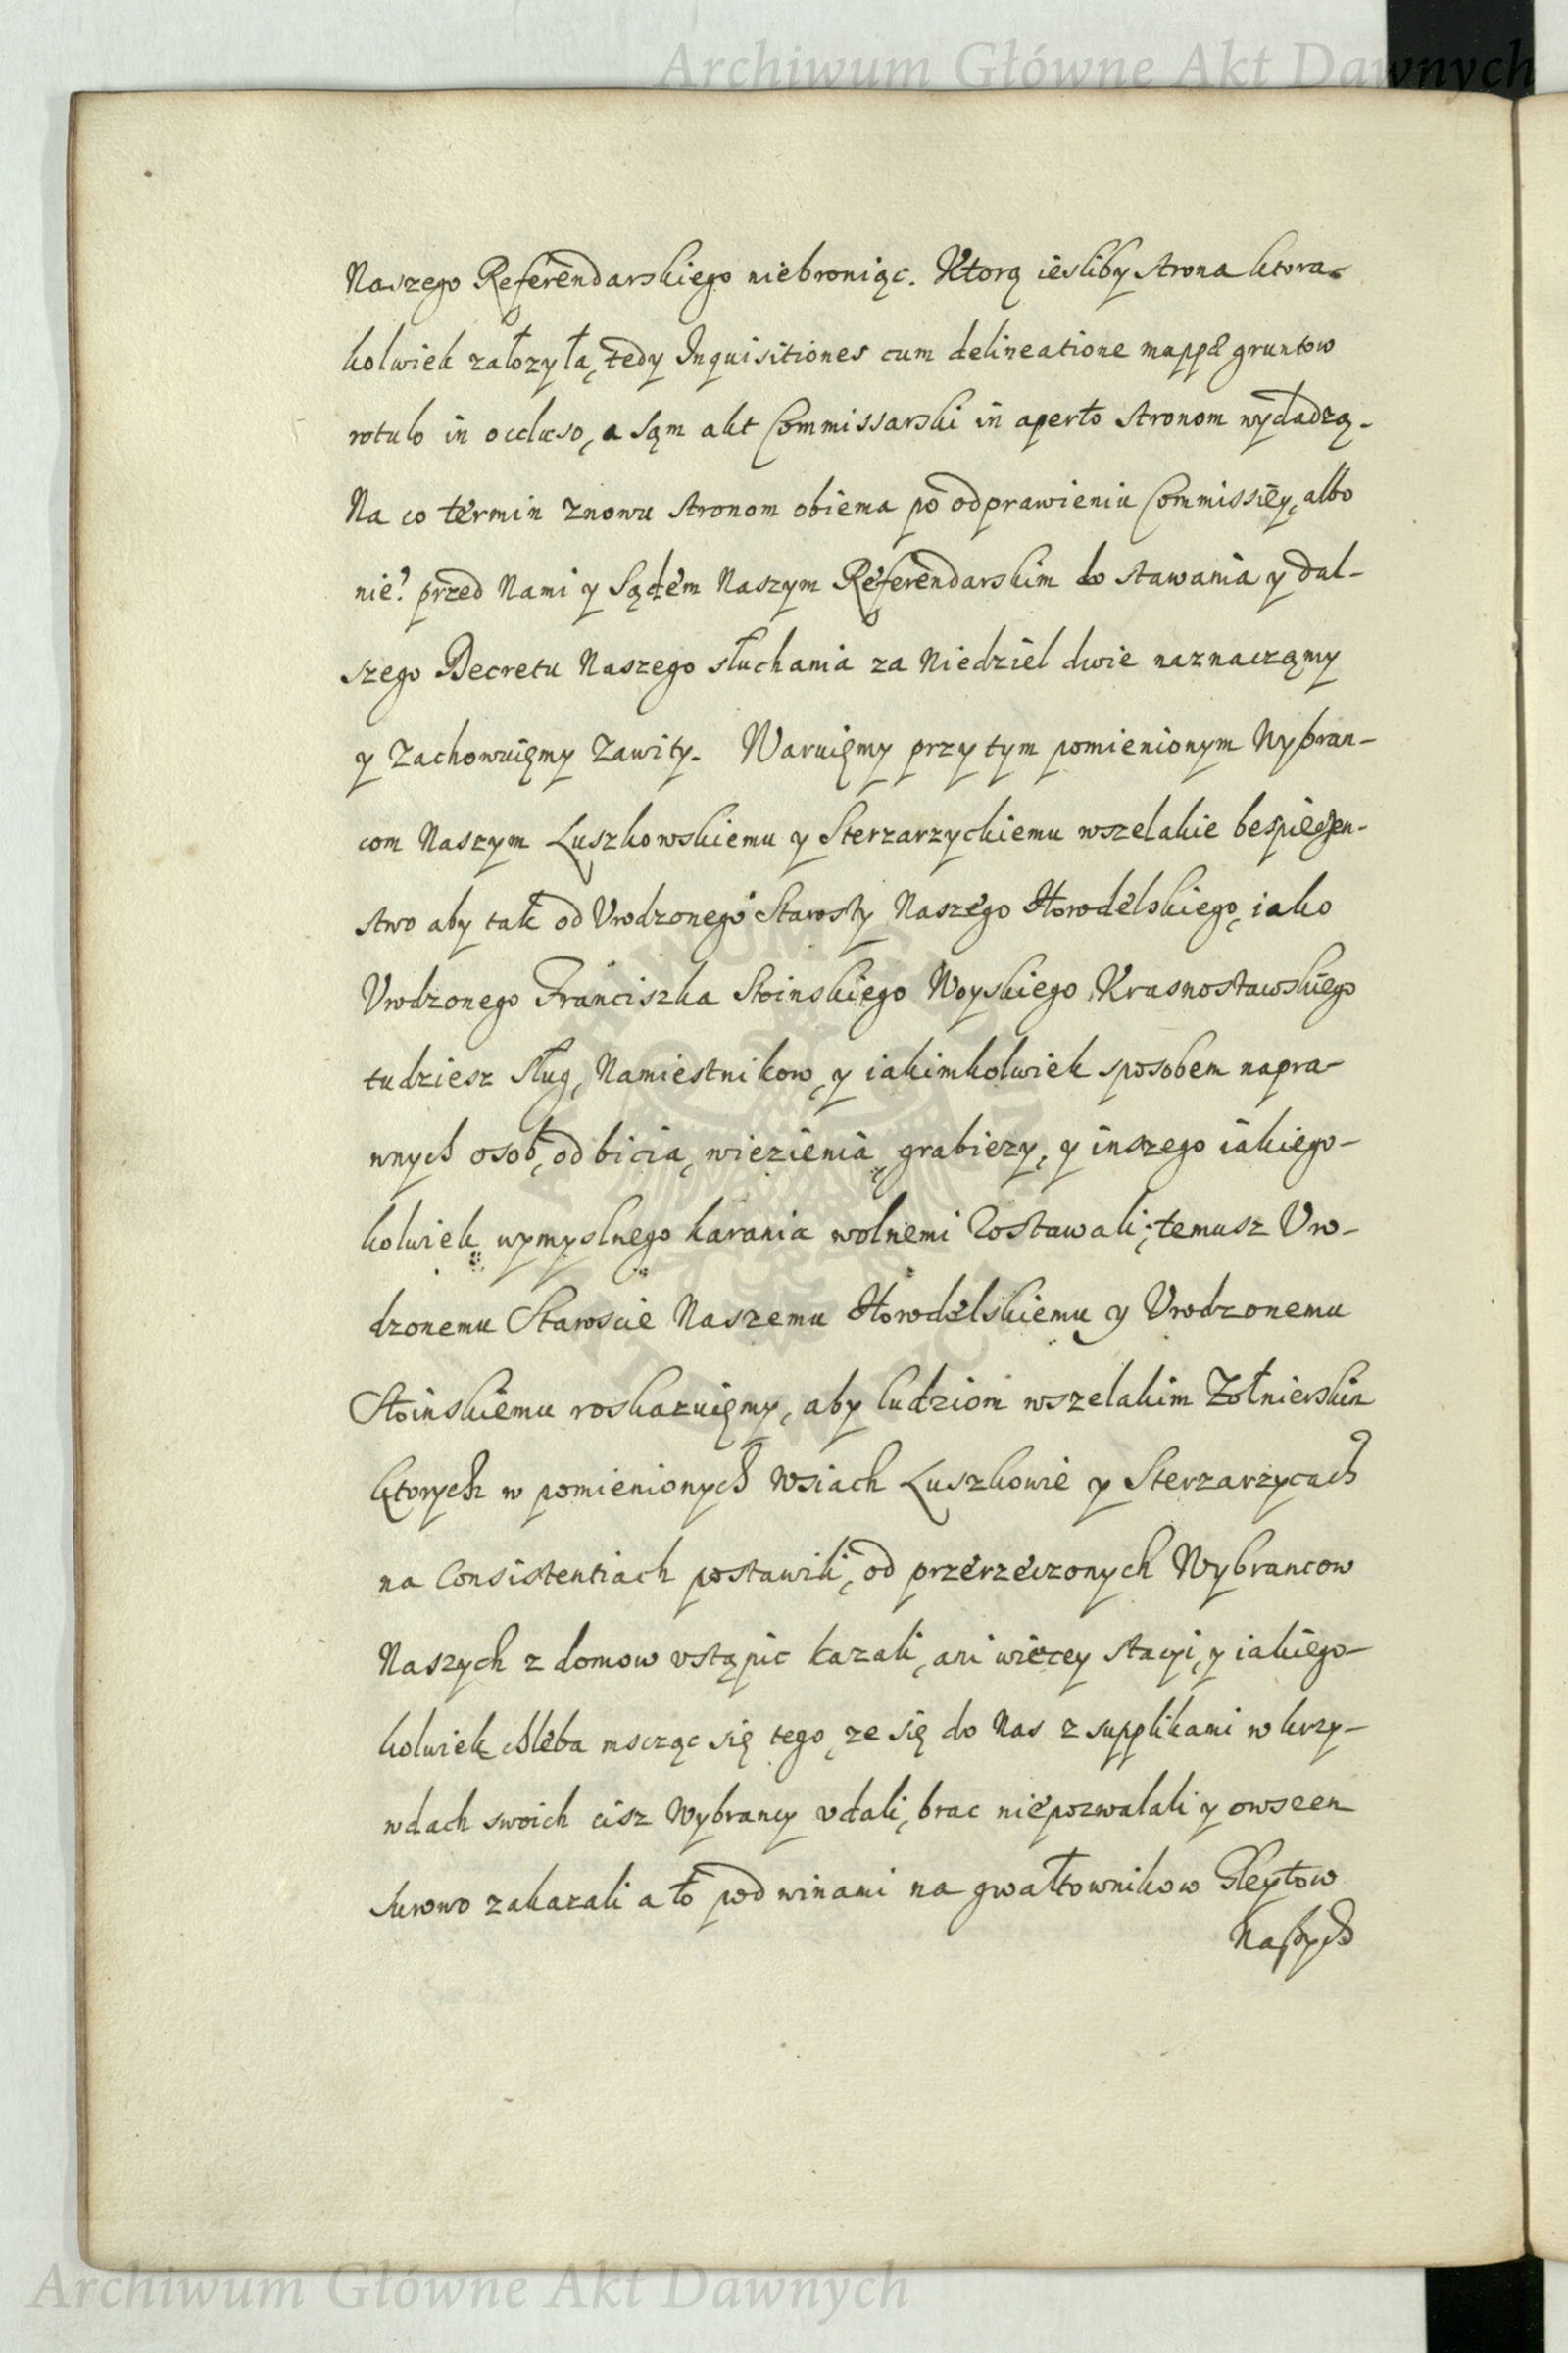 Archiwum Główne Akt Dawnych
Naszego Referendarskiego niebroniąc. Ktorą iesliby strona ktora-
kolwiek załozyła, tedy Inquisitiones cum delineatione mappæ gruntow
rotulo in occluso, a sąm akt Commissarski in aperto stronom wydadzą.
Na co termin znowu stronom obiema po odprawieniu Commissiey, albo
nie? przed Nami y Sądem Naszym Referendarskim do stawania y dal-
szego Decretu Naszego słuchania za Niedziel dwie naznacząmy
y Zachowuięmy Zawity. Waruięmy przy tym pomienionym Wybran-
com Naszym Luszkowskiemu y Sterzarzyckiemu wszelakie bespieczen-
stwo aby tak od Vrodzonego Starosty Naszego Horodelskiego, iako
Vrodzonego Franciszka Stoinskiego Woyskiego Krasnostawskiego
tudziesz sług, Namiestnikow, y iakimkolwiek sposobem napra-
wnych osob, od bicia, wiezienia, grabiezy, y inszego iakiego-
kolwiek wymyslnego karania wolnemi Zostawali; temusz Vro-
dzonemu Staroscie Naszemu Horodelskiemu y Vrodzonemu
Stoinskiemu roskazuięmy, aby ludziom wszelakim Zołnierskim
ktorych w pomienionych Wsiach Luszkowie y Sterzarzycach
na Consistentiach postawili, od przerzeczonych Wybrancow
Naszych z domow vstąpic kazali, ani wiecey stacyi, y iakiego-
kolwiek chleba mscząc się tego, ze się do Nas z supplikami w krzy-
wdach swoich cisz Wybrancy vdali, brac niepozwalali y owseem
surowo zakazali a to pod winami na gwałtownikow Gleytow
Naszych
Archiwum Główne Akt Dawnych